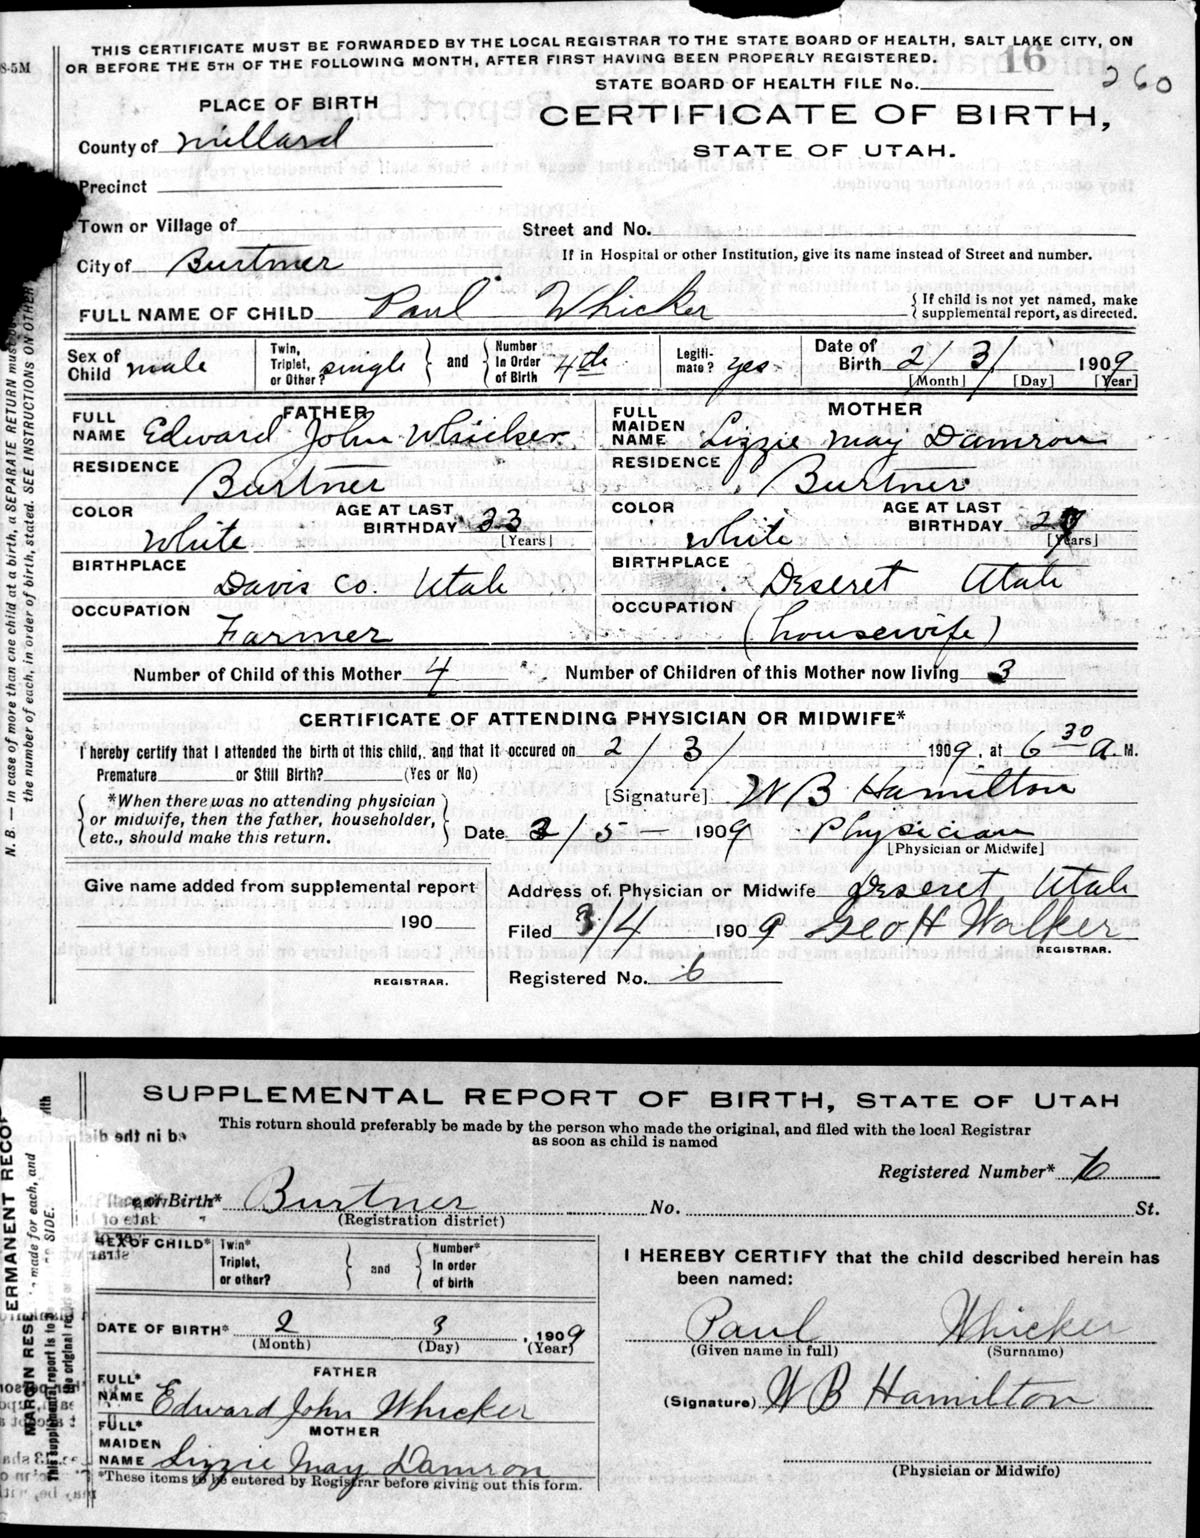 THIS CERTIFICATE MUST BE FORWARDED BY THE LOCAL REGISTRAR TO THE STATE BOARD OF HEALTH, SALT LAKE CITY, ON
OR BEFORE THE 5TH OF THE FOLLOWING MONTH, AFTER FIRST HAVING BEEN PROPERLY REGISTERED.
8-5M
16
STATE BOARD OF HEALTH FILE No.
260
PLACE OF BIRTH
CERTIFICATE OF BIRTH,
STATE OF UTAH.
County of Millard
Precinct
Town or Village of
Street and No.
City of Burtner
If in Hospital or other Institution, give its name instead of Street and number.
FULL NAME OF CHILD Paul Whicker
{ If child is not yet named, make supplemental report, as directed.
Sex of Child male
Twin, Triplet, or Other? single } and { Number In Order of Birth 4th
Legitimate? yes
Date of Birth 2/3/ 1909
[Month] [Day] [Year]
FATHER
FULL NAME Edward John Whicker
RESIDENCE Burtner
COLOR White
AGE AT LAST BIRTHDAY 33 [Years]
BIRTHPLACE Davis Co. Utah
OCCUPATION Farmer
MOTHER
FULL MAIDEN NAME Lizzie May Damron
RESIDENCE Burtner
COLOR white
AGE AT LAST BIRTHDAY 27 [Years]
BIRTHPLACE Deseret Utah
OCCUPATION (housewife)
Number of Child of this Mother 4
Number of Children of this Mother now living 3
CERTIFICATE OF ATTENDING PHYSICIAN OR MIDWIFE*
I hereby certify that I attended the birth of this child, and that it occured on 2/3/ 1909, at 6 30 a. M.
Premature or Still Birth? (Yes or No)
[Signature] W B Hamilton
{ *When there was no attending physician or midwife, then the father, householder, etc., should make this return. }
Date 3/5 - 1909 Physician
[Physician or Midwife]
Give name added from supplemental report
190
REGISTRAR.
Address of Physician or Midwife Deseret Utah
Filed 3/4 1909 Geo H Walker
REGISTRAR.
Registered No. 6
N. B. — In case of more than one child at a birth, a SEPARATE RETURN must
the number of each, in order of birth, stated. SEE INSTRUCTIONS ON OTHER
SUPPLEMENTAL REPORT OF BIRTH, STATE OF UTAH
This return should preferably be made by the person who made the original, and filed with the local Registrar
as soon as child is named
Registered Number* 6
of Birth* Burtner No. St.
(Registration district)
SEX OF CHILD*
Twin* Triplet, or other? } and { Number* In order of birth
DATE OF BIRTH* 2 3, 1909
(Month) (Day) (Year)
FATHER
FULL* NAME Edward John Whicker
MOTHER
FULL* MAIDEN NAME Lizzie May Damron
*These items to be entered by Registrar before giving out this form.
I HEREBY CERTIFY that the child described herein has
been named:
Paul Whicker
(Given name in full) (Surname)
(Signature) W B Hamilton
(Physician or Midwife)
ERMANENT RECO
MARGIN RESE
made for each, and
SIDE.
This supplemental report is to
the original